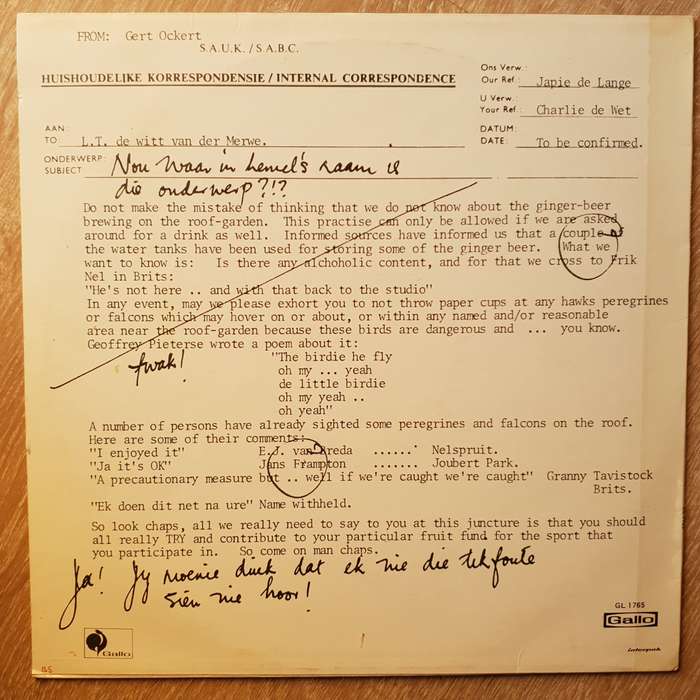 FROM: Gert Ockert
S.A.U.K./S.A.B.C.
HUISHOUDELIKE KORRESPONDENSIE / INTERNAL CORRESPONDENCE
Ons Verw.:
Our Ref.: Japie de Lange
U Verw.:
Your Ref.: Charlie de Wet
AAN:
TO L.T. de witt van der Merwe.
DATUM:
DATE: To be confirmed.
ONDERWERP:
SUBJECT Nou waar in hemel's naam is
die onderwerp?!?
Do not make the mistake of thinking that we do not know about the ginger-beer
brewing on the roof-garden. This practise can only be allowed if we are asked
around for a drink as well. Informed sources have informed us that a couple
the water tanks have been used for storing some of the ginger beer. What we
want to know is: Is there any alchoholic content, and for that we cross to Frik
Nel in Brits:
"He's not here .. and with that back to the studio"
In any event, may we please exhort you to not throw paper cups at any hawks peregrines
or falcons which may hover on or about, or within any named and/or reasonable
area near the roof-garden because these birds are dangerous and ... you know.
Geoffrey Pieterse wrote a poem about it:
"The birdie he fly
oh my ... yeah
de little birdie
oh my yeah ..
oh yeah"
Twak!
A number of persons have already sighted some peregrines and falcons on the roof.
Here are some of their comments:
"I enjoyed it" E.J. van Breda ...... Nelspruit.
"Ja it's OK" Jans Frampton ....... Joubert Park.
"A precautionary measure but .. well if we're caught we're caught" Granny Tavistock
Brits.
"Ek doen dit net na ure" Name withheld.
So look chaps, all we really need to say to you at this juncture is that you should
all really TRY and contribute to your particular fruit fund for the sport that
you participate in. So come on man chaps.
Ja! Jy moenie dink dat ek nie die tikfoute
sien nie hoor!
GL 1765
Gallo
Gallo
interpak